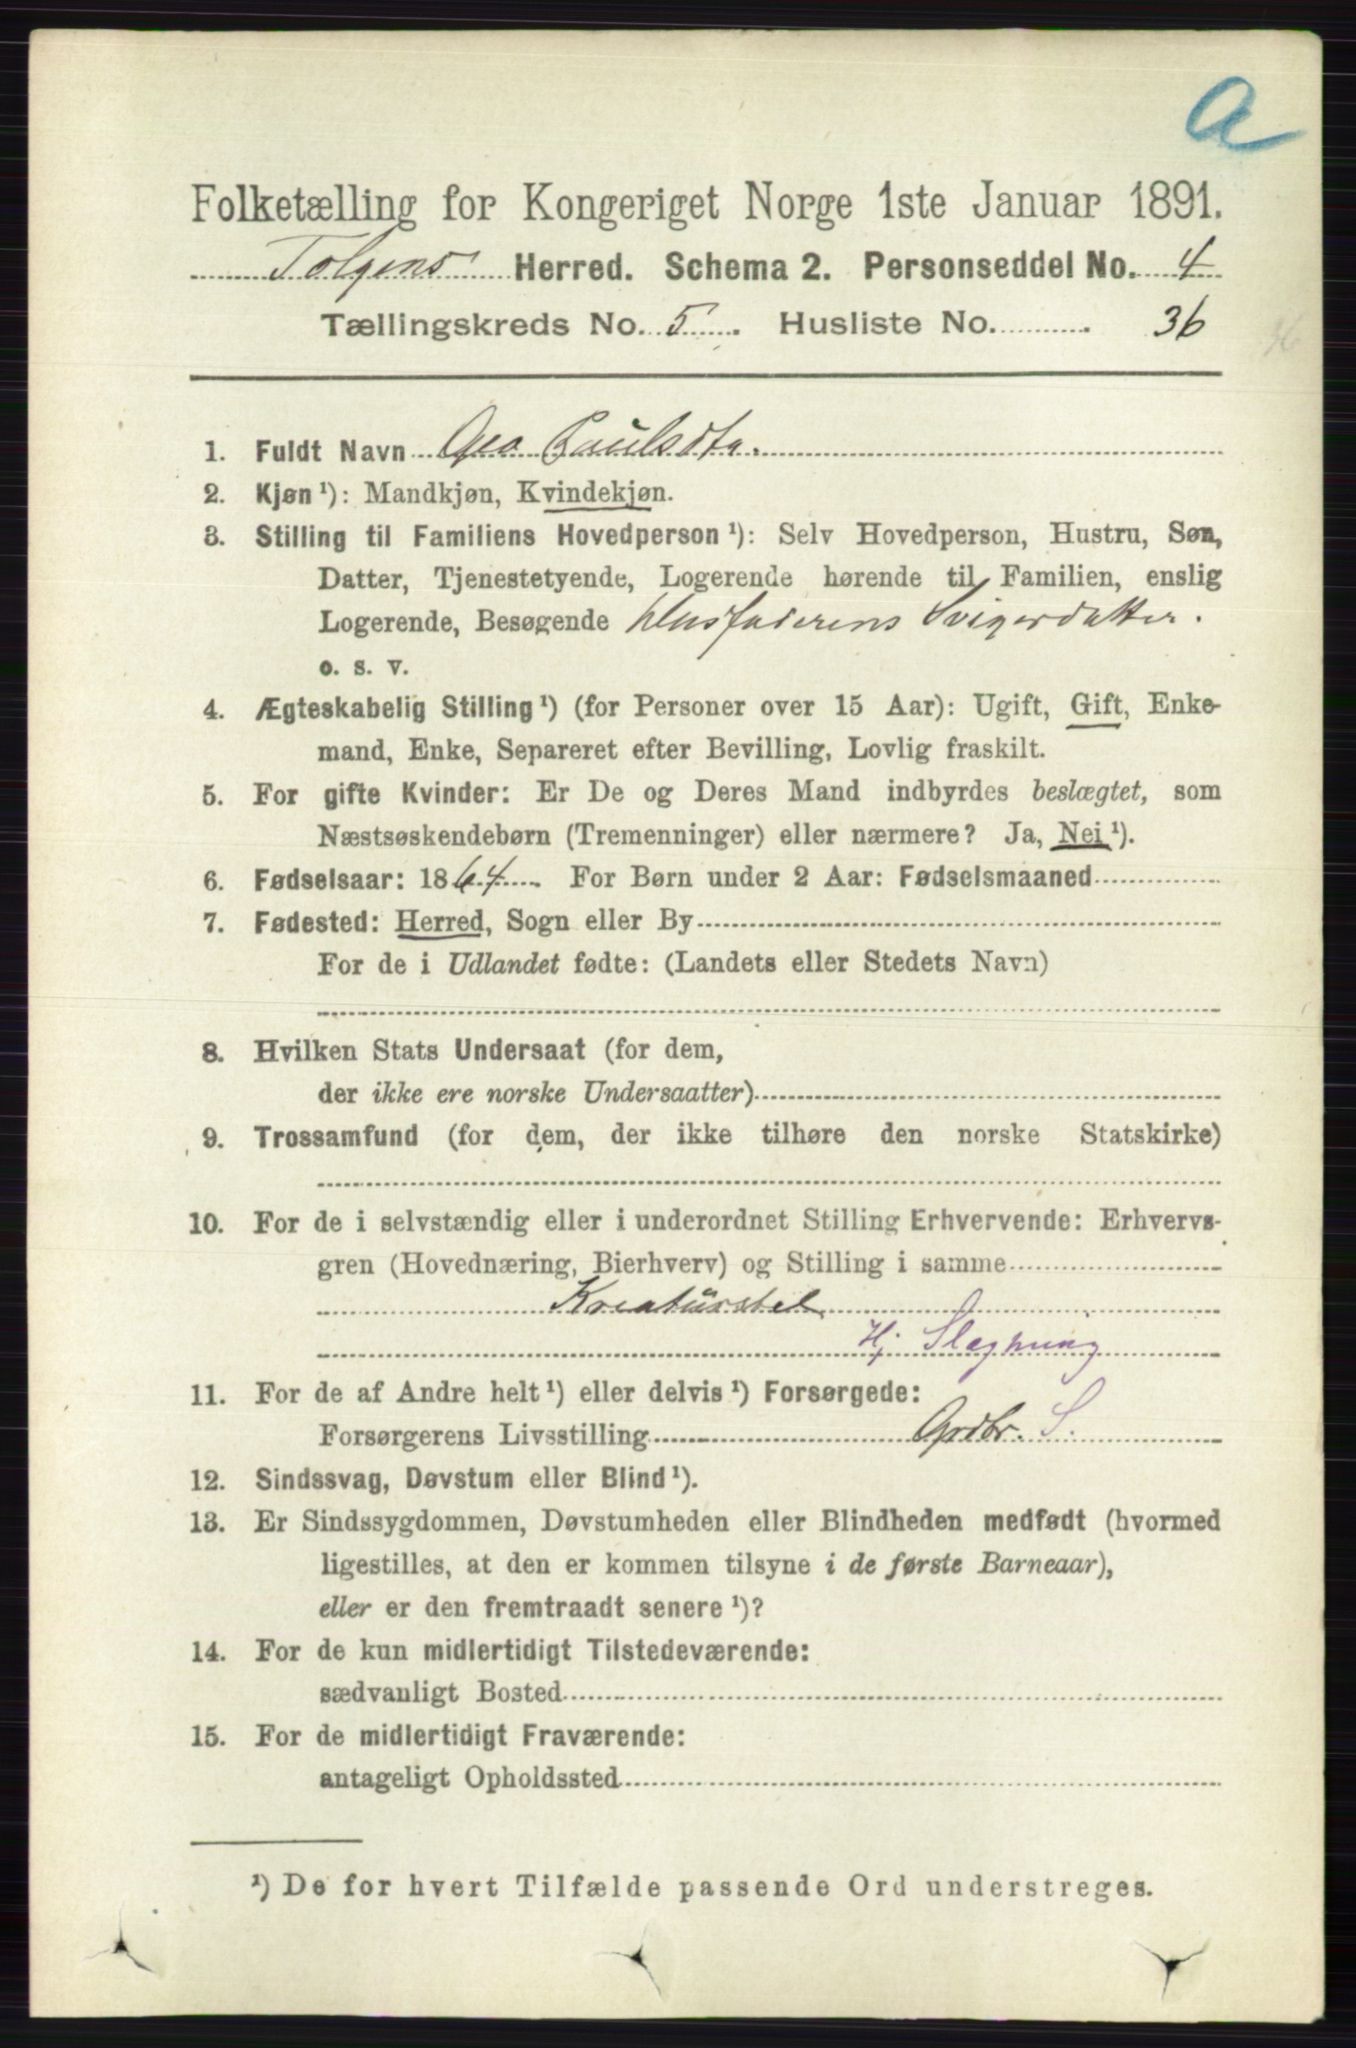 a
Folketælling for Kongeriget Norge 1ste Januar 1891.
Tolgens Herred. Schema 2. Personseddel No. 4
Tællingskreds No. 5. Husliste No. 36
36
1. Fuldt Navn Gea Paulsdtr.
2. Kjøn ¹): Mandkjøn, Kvindekjøn.
3. Stilling til Familiens Hovedperson ¹): Selv Hovedperson, Hustru, Søn,
Datter, Tjenestetyende, Logerende hørende til Familien, enslig
Logerende, Besøgende Husfaderens Svigerdatter.
o. s. v.
4. Ægteskabelig Stilling ¹) (for Personer over 15 Aar): Ugift, Gift, Enke-
mand, Enke, Separeret efter Bevilling, Lovlig fraskilt.
5. For gifte Kvinder: Er De og Deres Mand indbyrdes beslægtet, som
Næstsøskendebørn (Tremenninger) eller nærmere? Ja, Nei ¹).
6. Fødselsaar: 1864. For Børn under 2 Aar: Fødselsmaaned
7. Fødested: Herred, Sogn eller By
For de i Udlandet fødte: (Landets eller Stedets Navn)
8. Hvilken Stats Undersaat (for dem,
der ikke ere norske Undersaatter)
9. Trossamfund (for dem, der ikke tilhøre den norske Statskirke)
10. For de i selvstændig eller i underordnet Stilling Erhvervende: Erhvervs-
gren (Hovednæring, Bierhverv) og Stilling i samme
Kreaturstel
Hj Slegtning
11. For de af Andre helt ¹) eller delvis ¹) Forsørgede:
Forsørgerens Livsstilling Grdbr. S.
12. Sindssvag, Døvstum eller Blind ¹).
13. Er Sindssygdommen, Døvstumheden eller Blindheden medfødt (hvormed
ligestilles, at den er kommen tilsyne i de første Barneaar),
eller er den fremtraadt senere ¹)?
14. For de kun midlertidigt Tilstedeværende:
sædvanligt Bosted
15. For de midlertidigt Fraværende:
antageligt Opholdssted
¹) De for hvert Tilfælde passende Ord understreges.